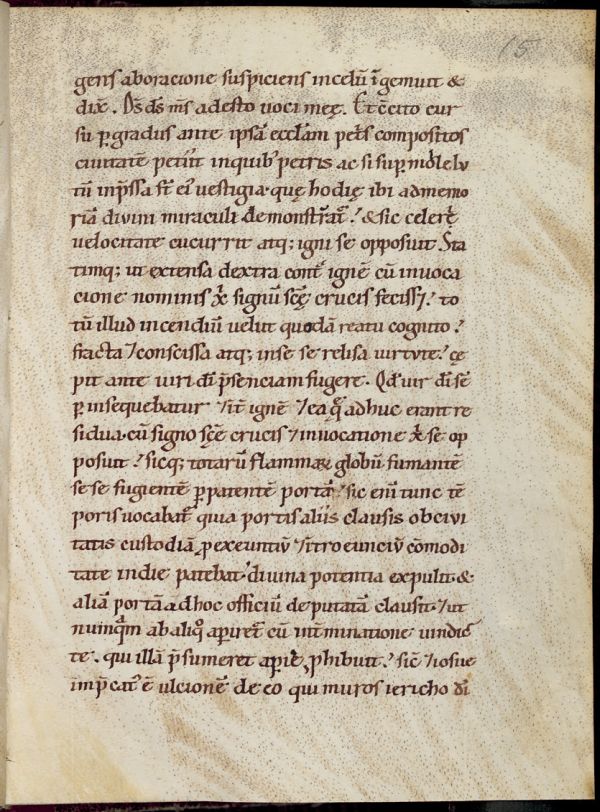 15
gens ab oracione suspiciens in celū īgemuit &
dix̄. Ds̄ ds̄ ms̄ adesto uoci meę. Et c̄cito cur
su p̄ gradus ante ipsā eccl̄am pet̄s compositos
ciuitatē petiit in quib; petris ac si sup̄ molle lu
tū inp̄ssa st̄ ei; uestigia. quę hodię ibi ad memo
riā diuini miraculi demonstrāt̄. & sic celerę
uelocitate cucurrit atq; igni se opposuit Sta
timq; ut extensa dextra cont̄ ignē cū inuoca
cione nominis xp̄i signū sc̄ę crucis fecisset. to
tū illud incendiū uelut quodā reatu cognito.
fracta ⁊ conscissa atq; in se se relisa uirtute. cę
pit ante uiri dī p̄senciam fugere. Qd̄ uir dī sē
p̄ insequebatur ignē ⁊ ea quę adhuc erant re
sidua. cū signo sc̄ę crucis ⁊ inuocatione xp̄i se op
posuit. sicq; totarū flammaꝝ globū fumantē
se se fugientē p̄ patentē portā. sic enī tunc tē
poris uocabat̄ quia portis aliis clausis ob ciui
tatis custodiā, p̄ exeuntiū ⁊ introeunciū cōmodi
tate in die patebat. diuina potentia expulit. &
aliā portā ad hoc officiū deputatā clausit. ⁊ ut
nūnq̄m ab aliquo apiret̄ cū int̄minatione uindic
te. qui illā p̄sumeret apire, p̄hibuit. sic ⁊ iosue
imp̄cat; ē ulcionē de eo qui muros iericho dī